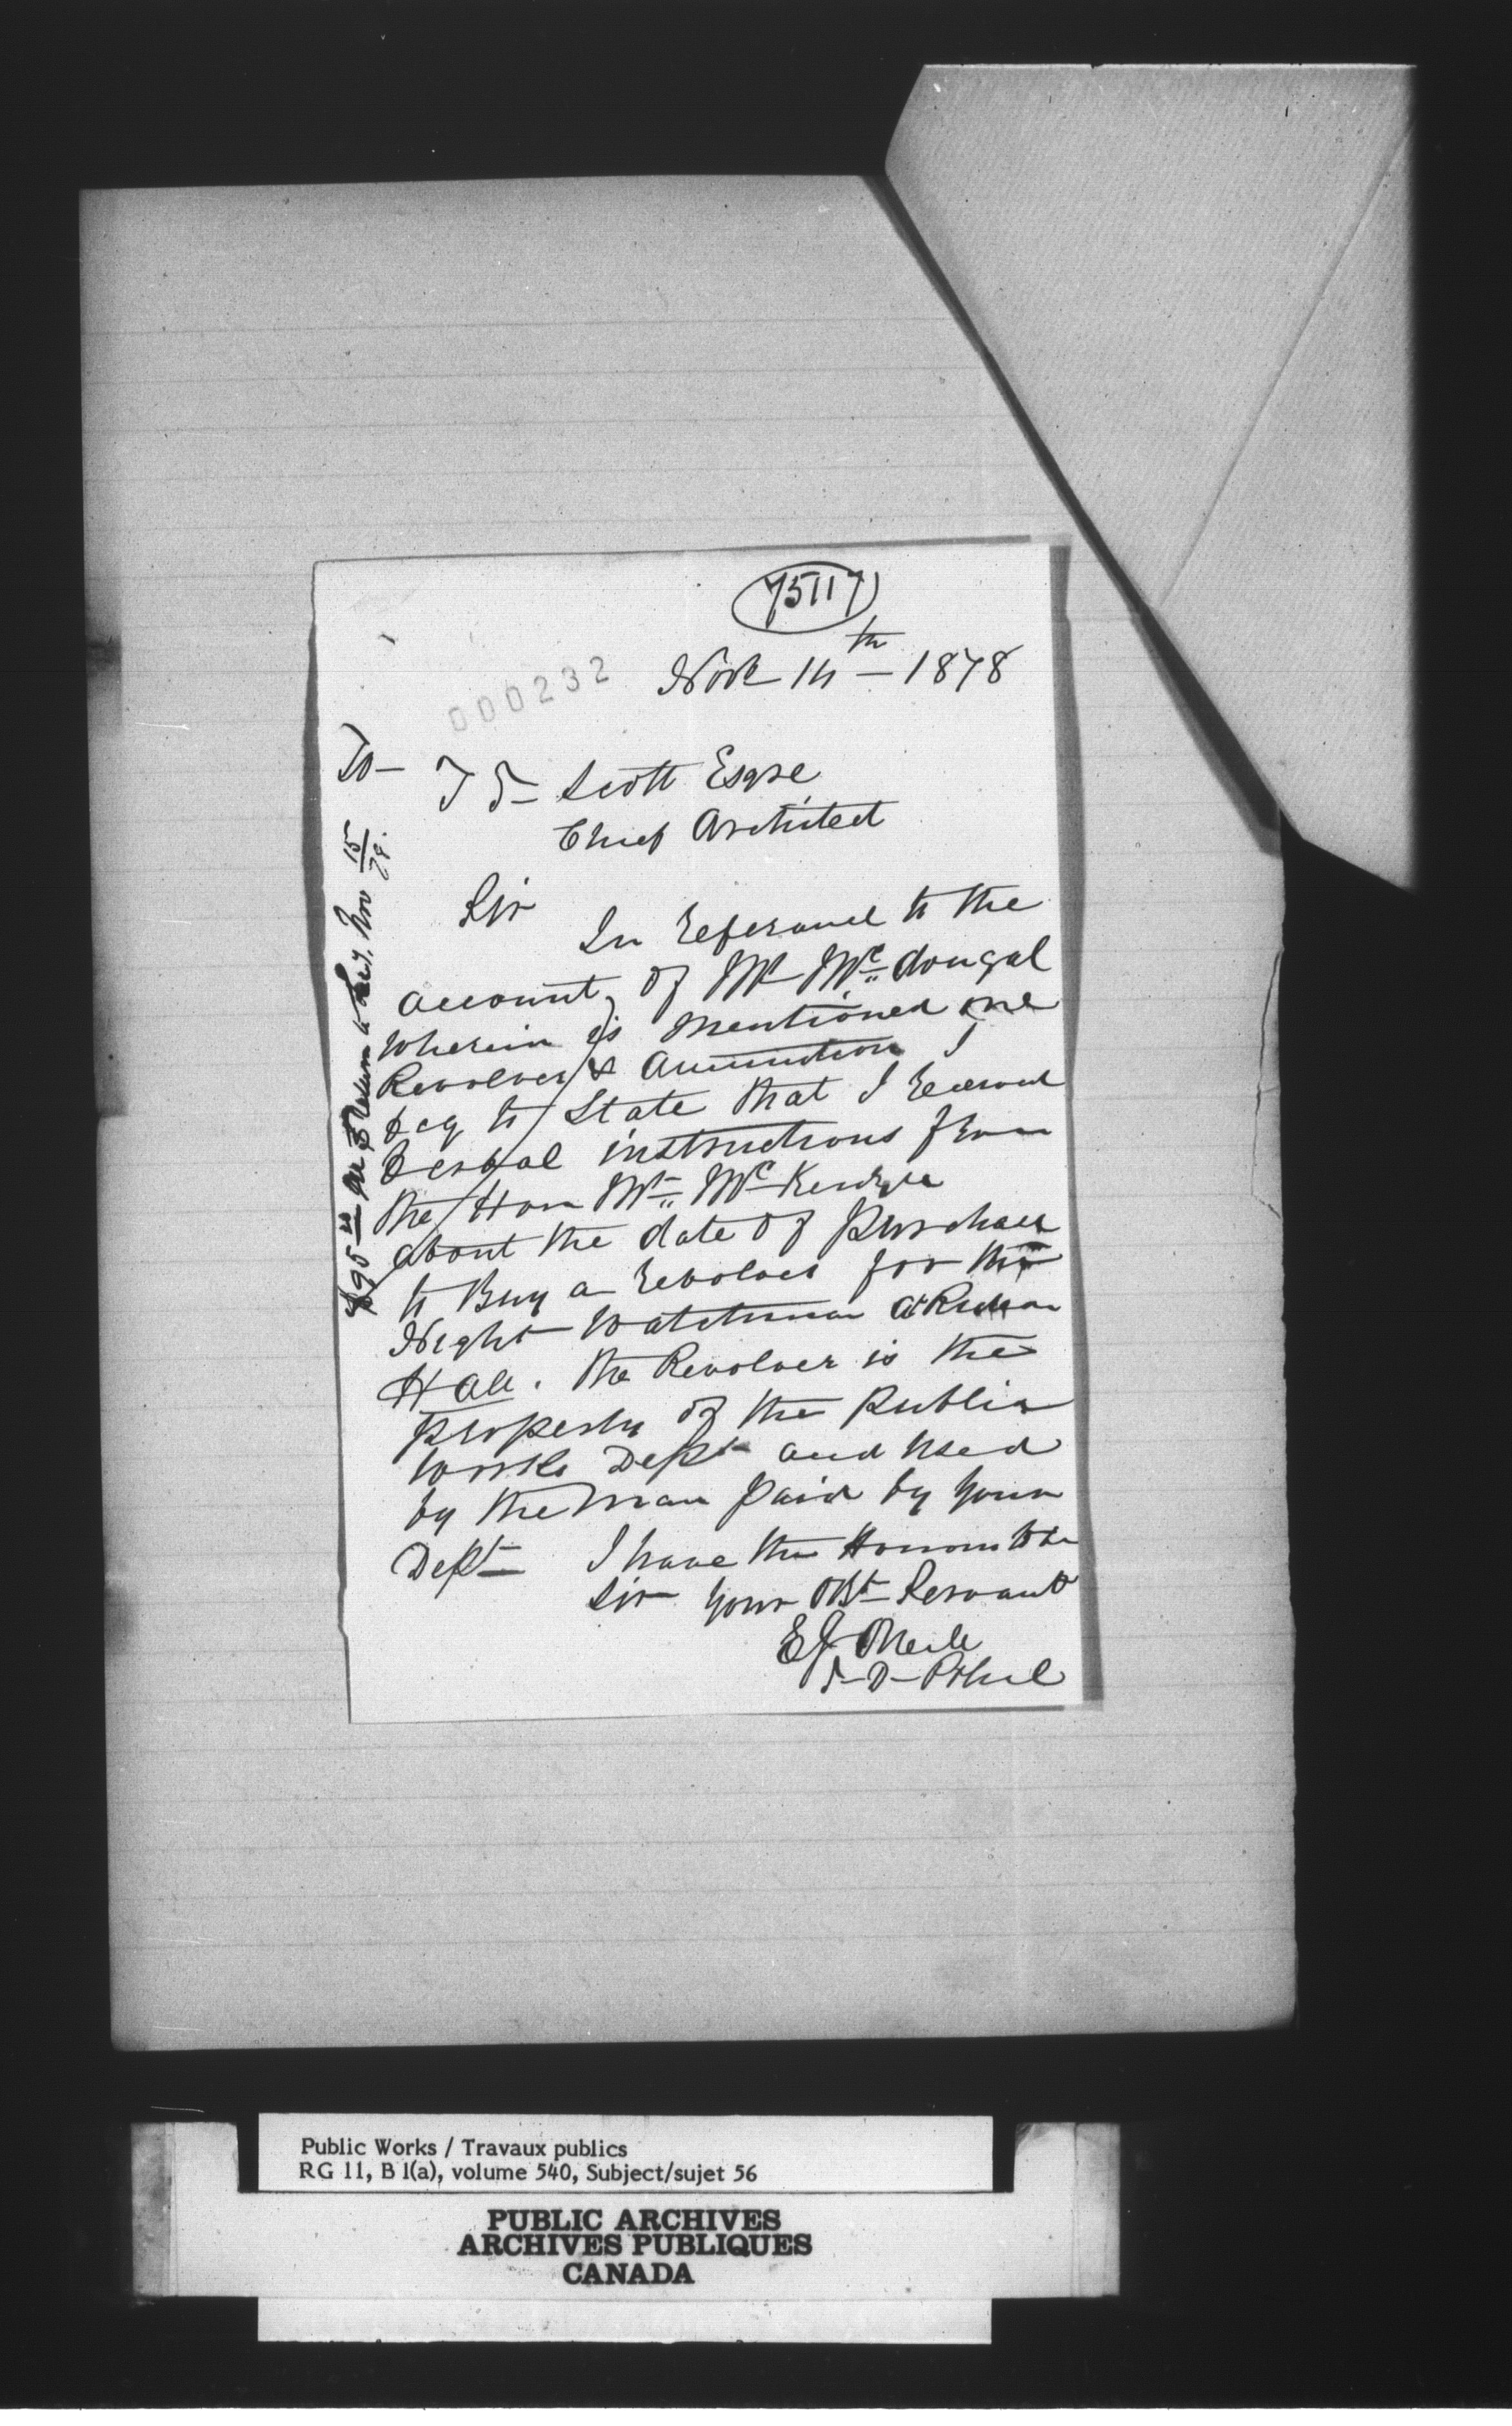 75117
Nov 14th – 1878
000232
To – T S – Scott Esqre
Chief Architect
Sir
In Referance to the
account, of Mr McDougal
wherein is mentioned one
Revolver & Amunition I
beg to State that I Received
Verbal instructions from
the Hon Mr McKenzie
about the date of purchase
to Buy a Revolver for the
Night Watchman at Rideau
Hall. The Revolver is the
property of the Public
Works Dept and used
by the man paid by your
Dept – I have the Honour to be
Sir your Obt Servant
Nov 15/78.
Public Works / Travaux publics
RG 11, B 1(a), volume 540, Subject/sujet 56
PUBLIC ARCHIVES
ARCHIVES PUBLIQUES
CANADA